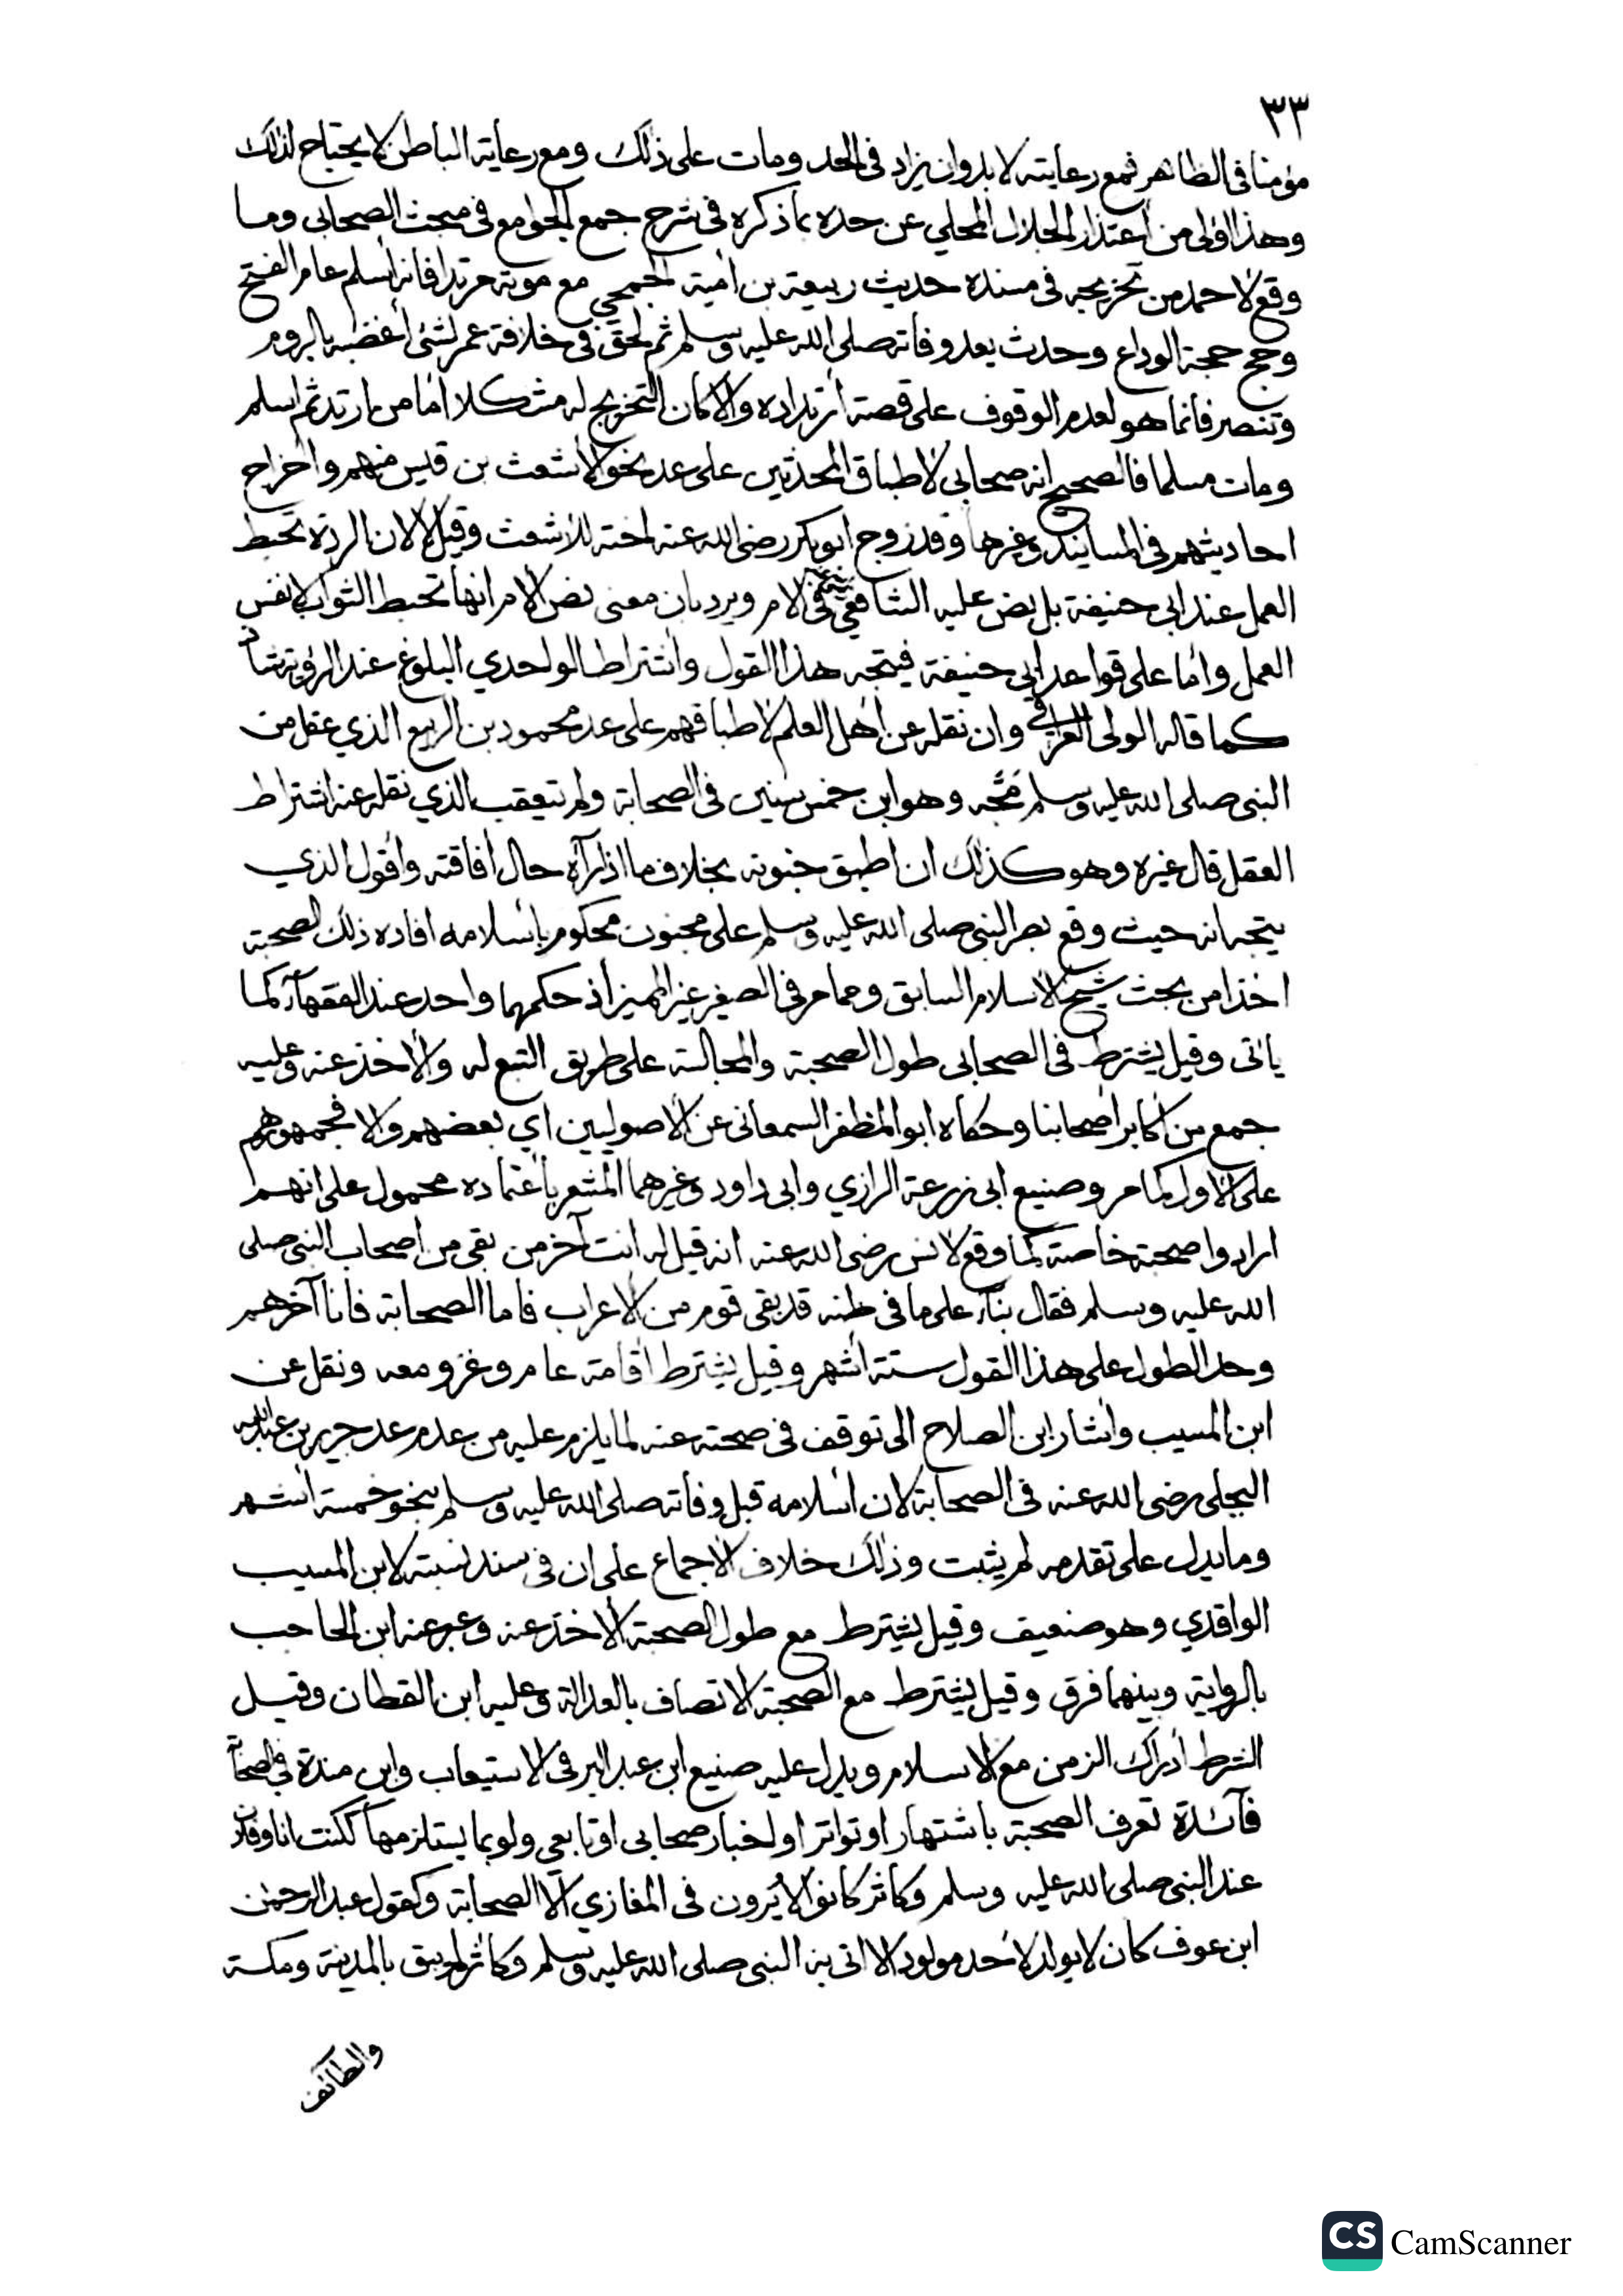 ٣٣
مؤمنا في الظاهر فمع رعايته لا بد وان يزاد في الحد ومات على ذلك ومع رعاية الباطن لا يحتاج لذلك
وهذا اولى من اعتذار الجلال المحلي عن حده بما ذكره في شرح جمع الجوامع في مبحث الصحابي وما
وقع لاحمد من تخريجه في مسنده حديث ربيعة بن امية الجمحي مع موته مرتدا فانه اسلم عام الفتح
وحج حجة الوداع وحدث بعد وفاته صلى الله عليه وسلم ثم لحق في خلافة عمر لشئ أغضبه بالروم
وتنصر فانما هو لعدم الوقوف على قصة ارتداده والا كان التخريج له مشكلا اما من ارتد ثم اسلم
ومات مسلما فالصحيح انه صحابي لاطباق المحدثين على عد نحو الاشعث بن قيس منهم واخراج
احاديثهم في المسانيد وغيرها وقد زوج ابو بكر رضي الله عنه اخته للأشعث وقيل لا لان الردة تحبط
العمل عند ابي حنيفة بل نص عليه الشافعي في الام ويرد بان معنى نص الام انها تحبط الثواب لا نفس
العمل واما على قواعد ابي حنيفة فيتجه هذا القول واشتراط الواحدي البلوغ عند الرؤية شاذ
كما قاله الولى العراقي وان نقله عن اهل العلم لاطباقهم على عد محمود بن الربيع الذي عقل من
النبي صلى الله عليه وسلم مَجَّه وهو ابن خمس سنين في الصحابة ولم يتعقب الذي نقله عنه اشتراط
العقل قال غيره وهو كذلك ان اطبق جنونه بخلاف ما اذا رآه حال افاقته واقول الذي
يتجه انه حيث وقع بصر النبي صلى الله عليه وسلم على مجنون محكوم باسلامه افاده ذلك لصحبة
اخذا من بحث شيخ الاسلام السابق ومما مر في الصغير غير المميز اذ حكمهما واحد عند الفقهآء كما
يأتي وقيل يشترط في الصحابي طول الصحبة والمجالسة على طريق التبع له والاخذ عنه وعليه
جمع من أكابر اصحابنا وحكاه ابو المظفر السمعاني عن الاصوليين اي بعضهم والا فجمهورهم
على الاول كما مر وصنيع ابي زرعة الرازي وابي داود وغيرهما المشعر باعتماده محمول على انهم
ارادوا صحبة خاصة كما وقع لانس رضي الله عنه انه قيل له انت آخر من بقي من اصحاب النبي صلى
الله عليه وسلم فقال بنآء على ما في ظنه قد بقى قوم من الاعراب فاما الصحابة فانا آخرهم
وحد الطول على هذا القول ستة اشهر وقيل يشترط اقامة عام وغزو معه ونقل عن
ابن المسيب واشار ابن الصلاح الى توقف في صحته عنه لما يلزم عليه من عدم عد جرير بن عبد الله
البجلي رضي الله عنه في الصحابة لان اسلامه قبل وفاته صلى الله عليه وسلم بنحو خمسة اشهر
وما يدل على تقدمه لم يثبت وذلك خلاف الاجماع على ان في سند نسبته لابن المسيب
الواقدي وهو ضعيف وقيل يشترط مع طول الصحبة الاخذ عنه وعبر عنه ابن الحاجب
بالرواية وبينهما فرق وقيل يشترط مع الصحبة الاتصاف بالعدالة وعليه ابن القطان وقيل
الشرط ادراك الزمن مع الاسلام ويدل عليه صنيع ابن عبد البر في الاستيعاب وابن مندة في الصحابة
فآئدة تعرف الصحبة باشتهار او تواتر او اخبار صحابي او تابعي ولو بما يستلزمها ككنت انا وفلان
عند النبي صلى الله عليه وسلم وكاثر كانوا لا يُرون في المغازي الا الصحابة وكقول عبد الرحمن
ابن عوف كان لا يولد لاحد مولود الا اتى به النبي صلى الله عليه وسلم وكاثر لم يبق بالمدينة ومكة
والطائف
CS CamScanner